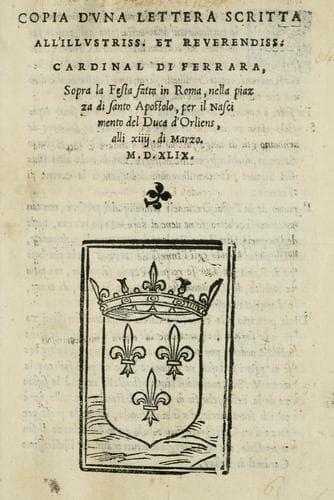 COPIA D'VNA LETTERA SCRITTA
ALL'ILLVSTRISS. ET REVERENDISS.
CARDINAL DI FERRARA,
Sopra la Festa fatta in Roma, nella piaz
za di santo Apostolo, per il Nasci
mento del Duca d'Orliens,
alli xiiij. di Marzo.
M. D. XLIX.